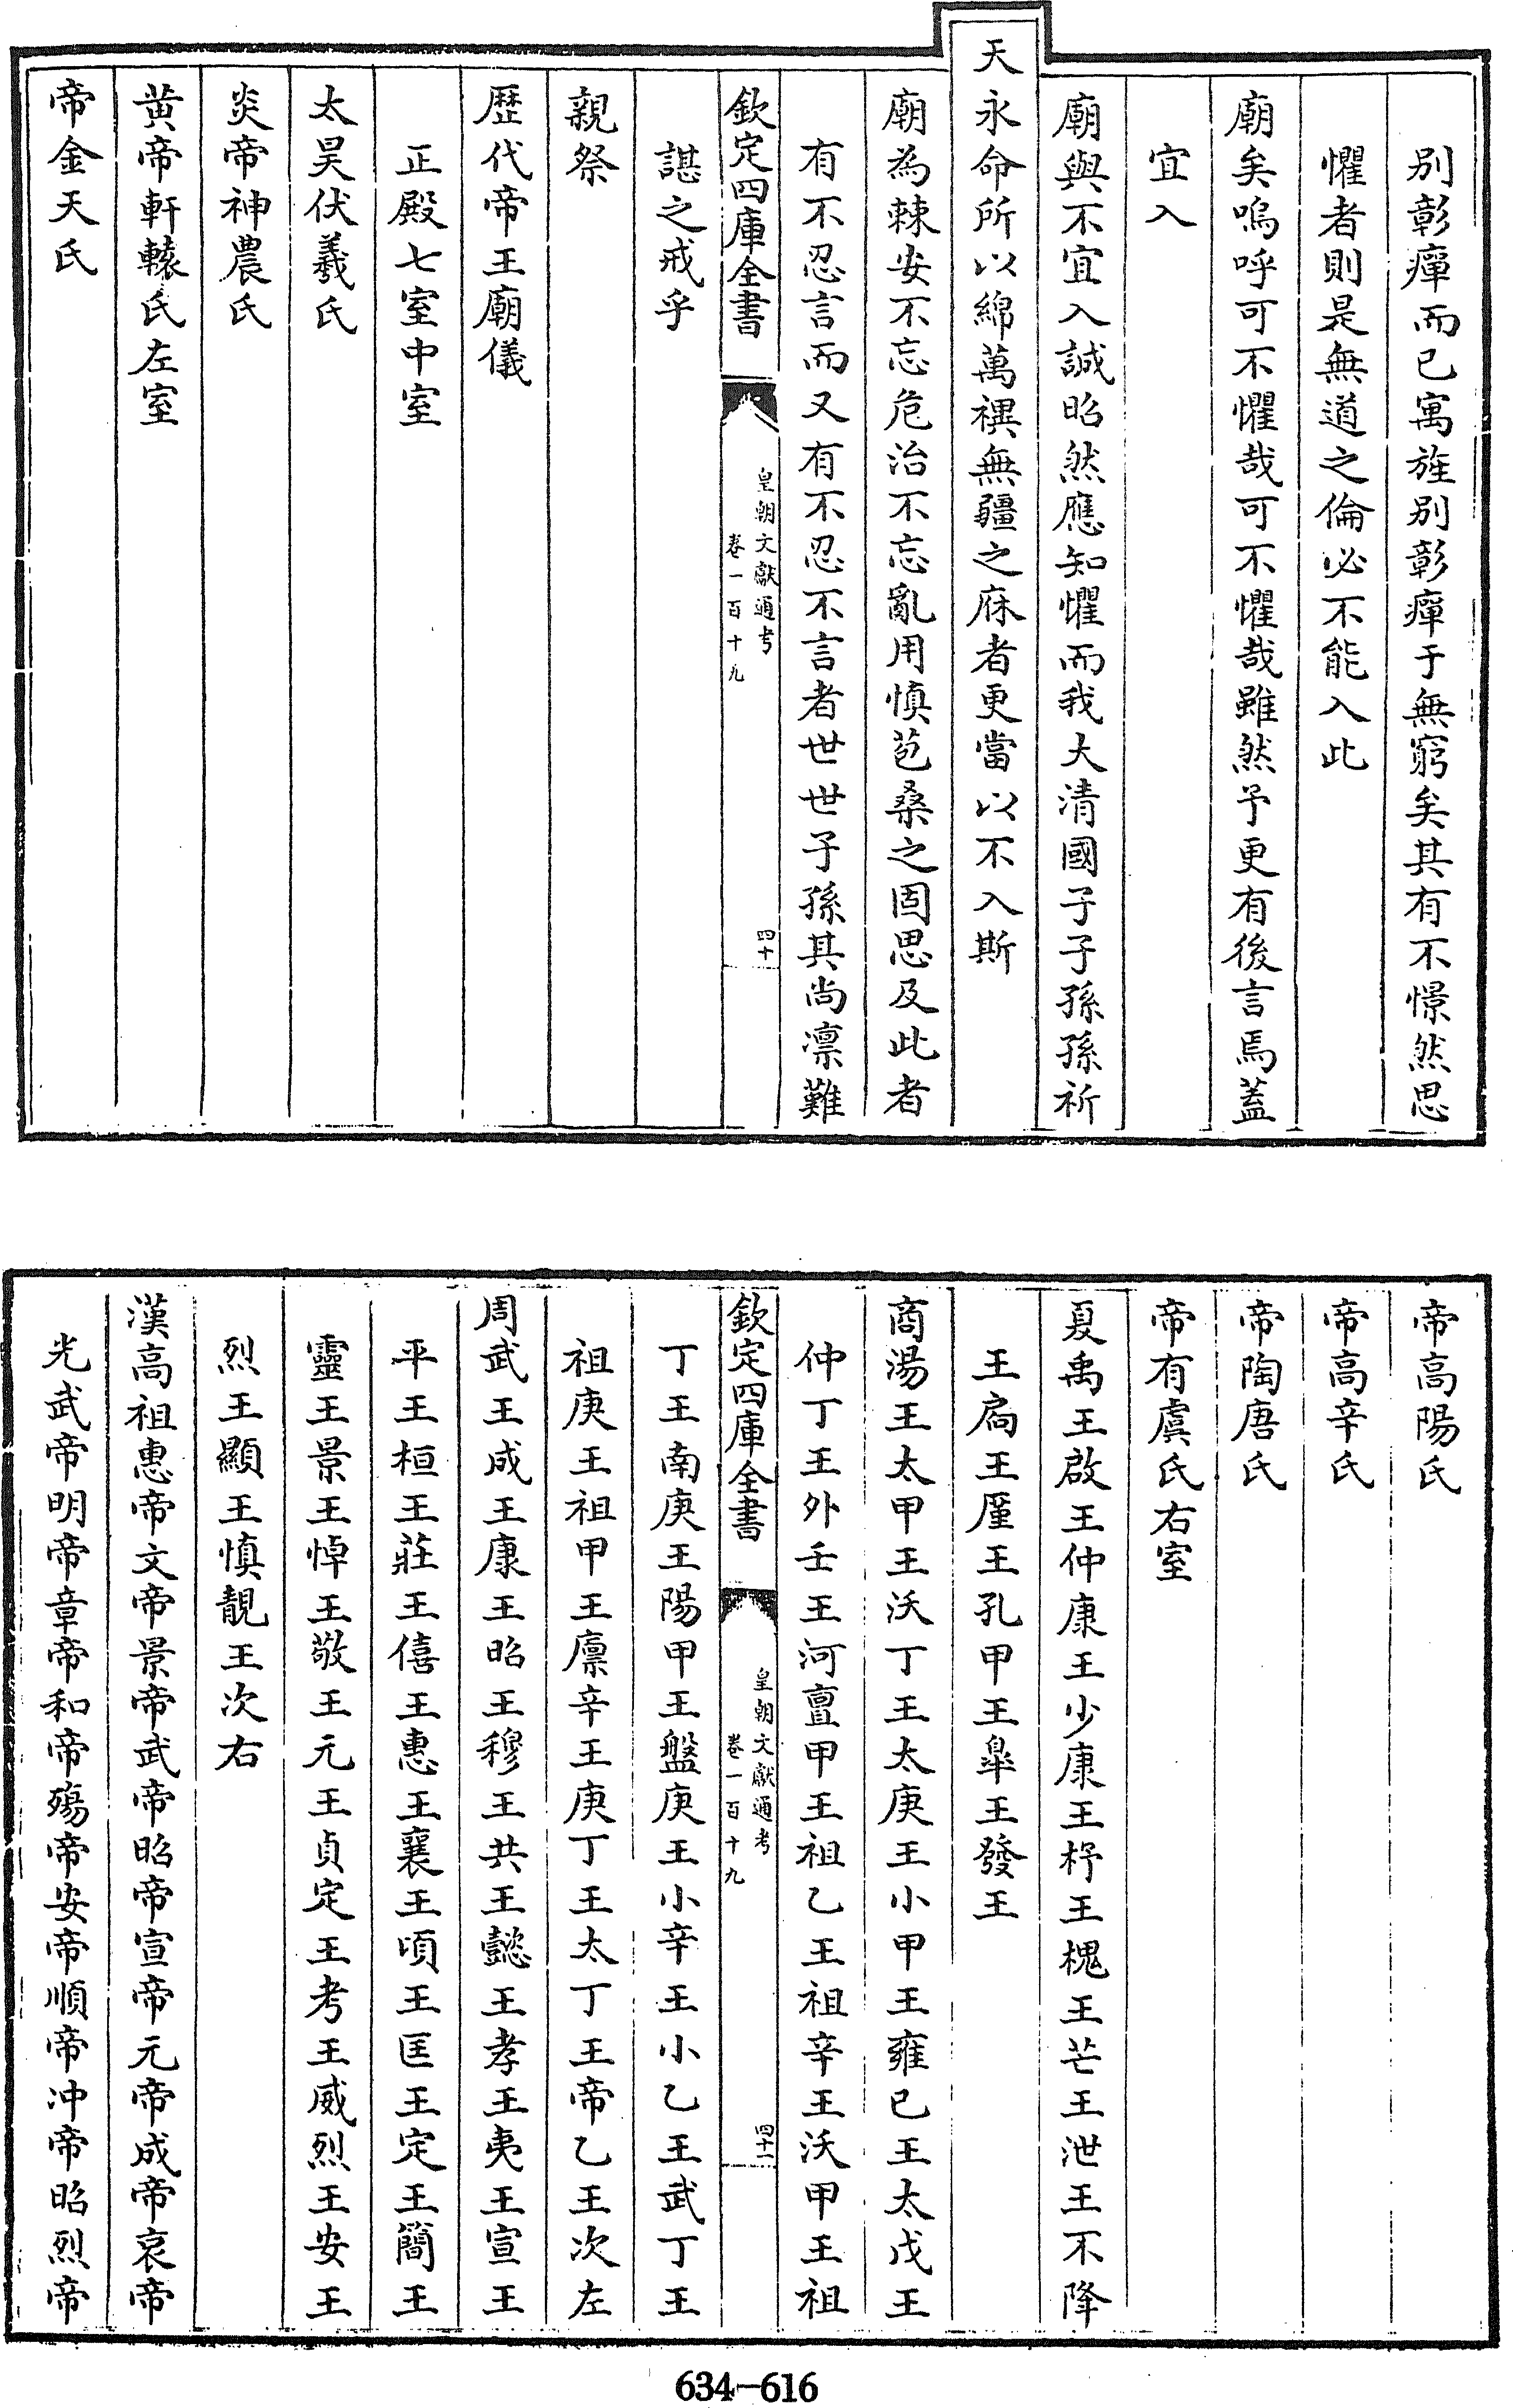 別彰癉而已寓旌別彰癉于無窮矣其有不憬然思
懼者則是無道之倫必不能入此
廟矣嗚呼可不懼哉可不懼哉雖然予更有後言焉蓋
宜入
廟與不宜入誠昭然應知懼而我大清國子子孫孫祈
天永命所以綿萬禩無疆之庥者更當以不入斯
廟為棘安不忘危治不忘亂用慎苞桑之固思及此者
有不忍言而又有不忍不言者世世子孫其尚凛難
欽定四庫全書
皇朝文獻通考
卷一百十九
四十
諶之戒乎
親祭
歷代帝王廟儀
正殿七室中室
太昊伏羲氏
炎帝神農氏
黄帝軒轅氏左室
帝金天氏
帝高陽氏
帝高辛氏
帝陶唐氏
帝有虞氏右室
夏禹王啟王仲康王少康王杼王槐王芒王泄王不降
王扃王廑王孔甲王臯王發王
商湯王太甲王沃丁王太庚王小甲王雍已王太戊王
仲丁王外壬王河亶甲王祖乙王祖辛王沃甲王祖
欽定四庫全書
皇朝文獻通考
卷一百十九
四十一
丁王南庚王陽甲王盤庚王小辛王小乙王武丁王
祖庚王祖甲王廪辛王庚丁王太丁王帝乙王次左
周武王成王康王昭王穆王共王懿王孝王夷王宣王
平王桓王莊王僖王惠王襄王頃王匡王定王簡王
靈王景王悼王敬王元王貞定王考王威烈王安王
烈王顯王慎靚王次右
漢高祖惠帝文帝景帝武帝昭帝宣帝元帝成帝哀帝
光武帝明帝章帝和帝殤帝安帝順帝冲帝昭烈帝
634-616